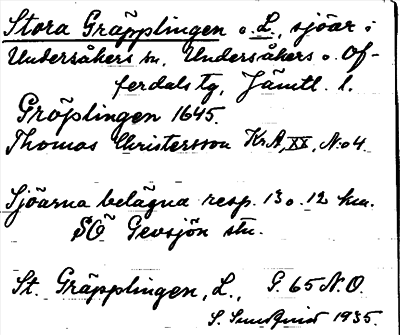 Stora Gräpplingen o. L., sjöar i
Undersåkers sn, Undersåkers o. Of-
ferdals tg, Jämtl. l.
Gröplingen 1645.
Thomas Christersson KrA, XX, No 4
Sjöarna belägna resp. 13 o. 12 km.
SO Gevsjön stn.
St. Gräpplingen, L., G. 65 N.O.
S. Sundqvist 1935